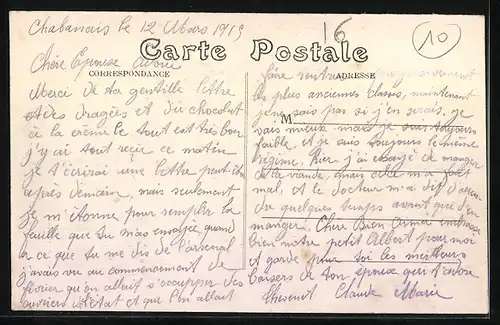 Chabanais le 12 Mars 1915
16
10
Carte Postale
CORRESPONDANCE
ADRESSE
M
Chère Epouse
Merci de ta gentille lettre
et des dragées et du chocolat
à la crème le tout est très bon
j'y ai tout reçu ce matin
je t'écrirai une lettre
après demain, mais seulement
je m'étonne pour remplir la
feuille que tu m'as envoyée quand
a ce que tu me dis de l'arsenal
j'avais vu au commencement de
février qu'on allait s'occuper des
ouvriers de l'état et que l'on allait
faire rentrer progressivement
les plus anciennes classes, maintenant
je ne sais pas si j'en serais, je
vais mieux mais je suis toujours
faible, et je suis toujours le même
régime, hier j'ai essayé de manger
de la viande, mais cela m'a fait
mal, et le docteur m'a dit
quelques temps avant que d'en
manger. Chère Bien Aimée embrasse
bien notre petit Albert pour moi
et garde pour toi les meilleurs
baisers de ton époux qui t'adore
Claude Marie